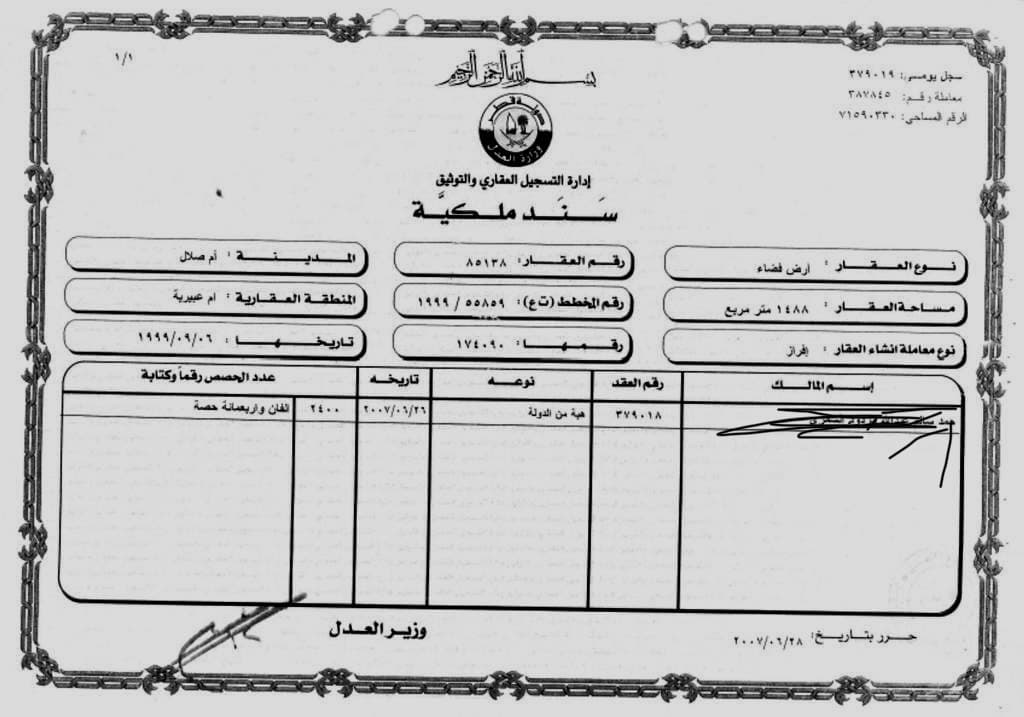 ١/١
بسم الله الرحمن الرحيم
سجل يومي: ٣٧٩٠١٩
معاملة رقم: ٣٨٧٨٤٥
الرقم المساحي: ٧١٥٩٠٣٣٠
دولة قطر
وزارة العدل
إدارة التسجيل العقاري والتوثيق
سَنَد ملكيَّة
نوع العقار : أرض فضاء
رقم العقار: ٨٥١٣٨
المدينة : أم صلال
مساحة العقار : ١٤٨٨ متر مربع
رقم المخطط (ت ع): ٥٥٨٥٩ / ١٩٩٩
المنطقة العقارية : ام عبيرية
نوع معاملة انشاء العقار : إفراز
رقمها: ١٧٤٠٩٠
تاريخها : ١٩٩٩/٠٩/٠٦
إسم المالك رقم العقد نوعه تاريخه عدد الحصص رقماً وكتابة
٣٧٩٠١٨ هبة من الدولة ٢٠٠٧/٠٦/٢٦ ٢٤٠٠ الفان واربعمائة حصة
وزير العدل
حرر بتاريخ: ٢٠٠٧/٠٦/٢٨